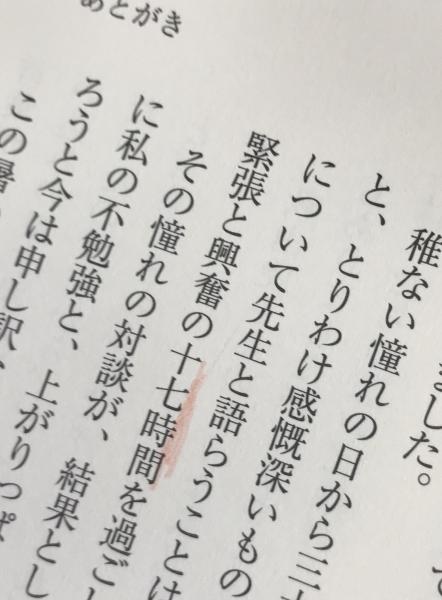 あとがき
て
ました。
稚ない憧れの日から三
と、とりわけ感慨深いもの
について先生と語らうことは
緊張と興奮の十七時間を過ごし
その憧れの対談が、結果とし
に私の不勉強と、上がりっぱ
ろうと今は申し訳
この暑